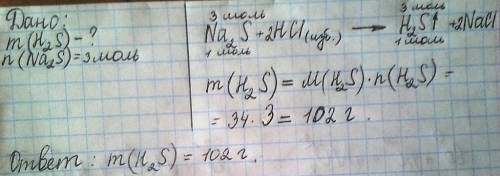 Дано:
m(H₂S) – ?
n(Na₂S)=3моль
3 моль 3 моль
Na₂S+2HCl(изб.) → H₂S↑ +2NaCl
1 моль 1 моль
m(H₂S) = M(H₂S)·n(H₂S) =
= 34·3 = 102 г.
Ответ: m(H₂S) = 102 г.